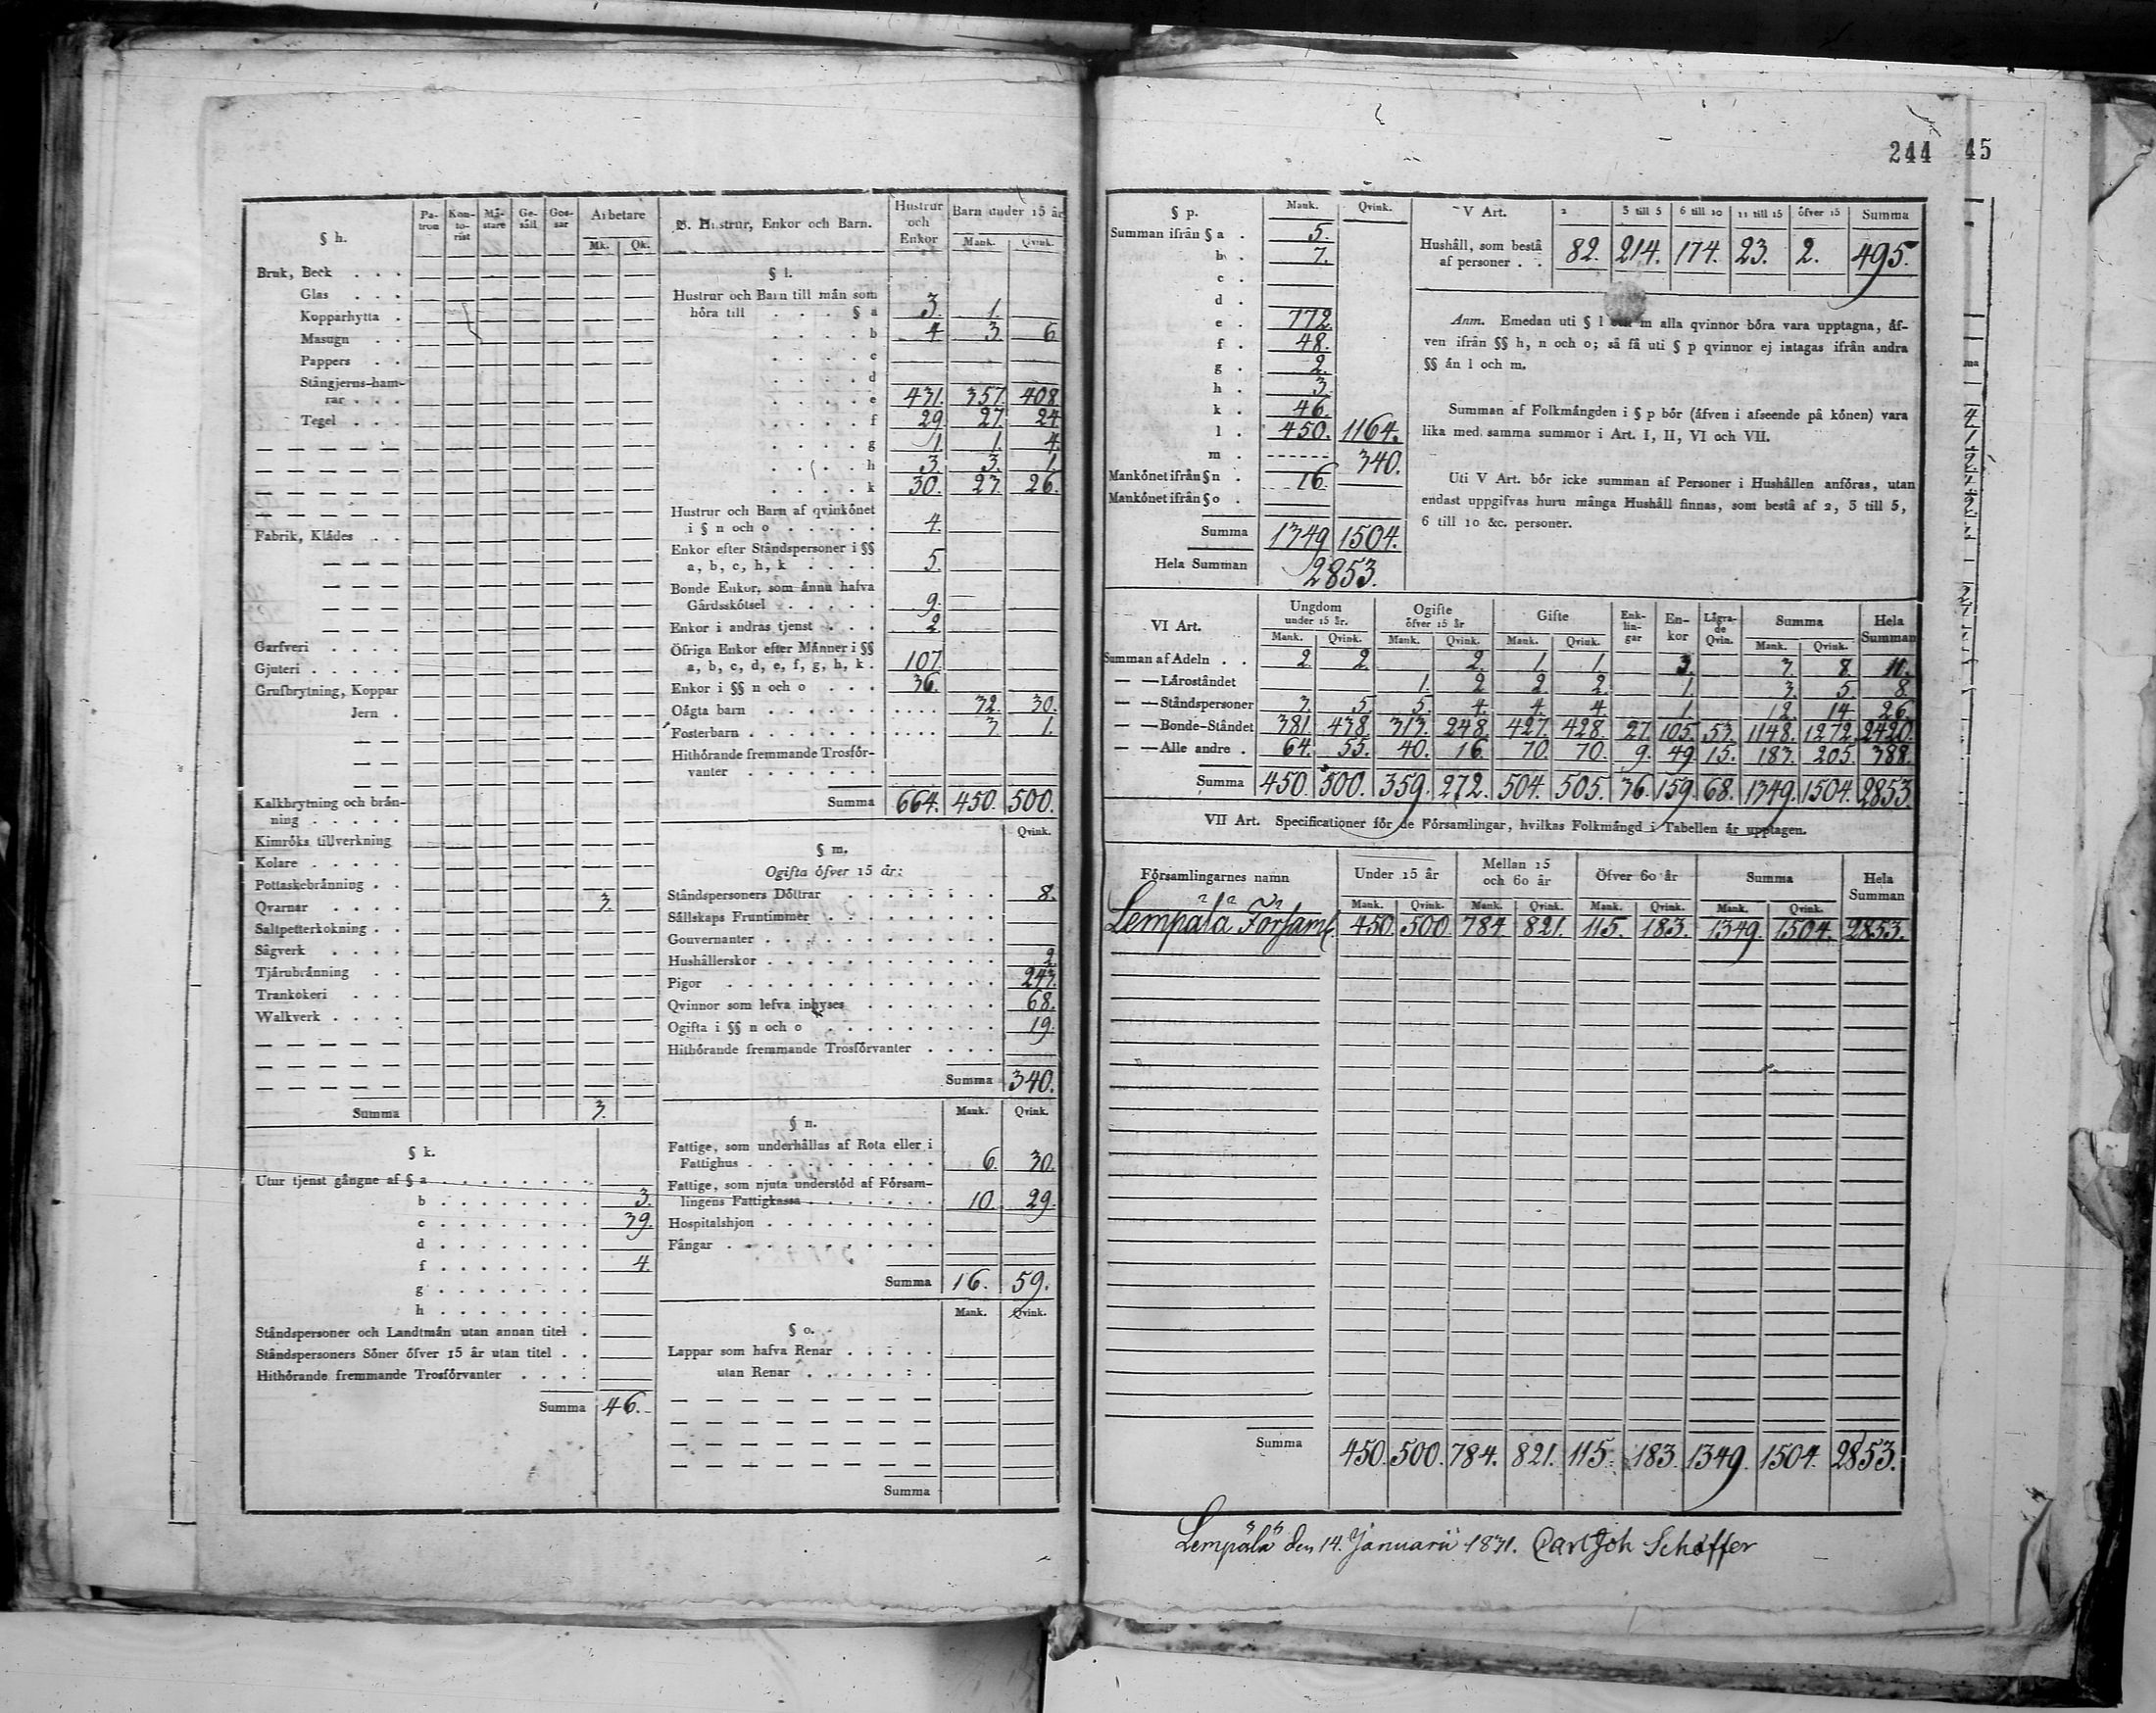 244 45
§ h.
Pa-tron Kon-to-rist Mä-stare Ge-säll Gos-sar Arbetare
Mk. Qk.
Bruk, Beck . . .
Glas . . .
Kopparhytta .
Masugn . .
Pappers . .
Stångjerns-ham-
rar . . .
Tegel . . .
Fabrik, Klädes . .
Garfveri . . . .
Gjuteri . . . . .
Grufbrytning, Koppar
Jern .
Kalkbrytning och brän-
ning . . . . .
Kimröks tillverkning
Kolare . . . . .
Pottaskebränning . .
Qvarnar . . . . 3.
Saltpetterkokning . .
Sågverk . . . .
Tjärubränning . .
Trankokeri . . .
Walkverk . . . .
Summa 3.
§ k.
Utur tjenst gångne af § a . . . . . . . .
b . . . . . . . . 3.
c . . . . . . . . 39.
d . . . . . . . .
f . . . . . . . . 4.
g . . . . . . . .
h . . . . . . . .
Ståndspersoner och Landtmän utan annan titel .
Ståndspersoners Söner öfver 15 år utan titel . .
Hithörande fremmande Trosförvanter . . . .
Summa 46.
B. Hustrur, Enkor och Barn. Hustrur och Enkor Barn under 15 år
Mank. Qvink.
§ l.
Hustrur och Barn till män som
höra till . . . § a 3. 1.
. . . . b 4 3. 6
. . . . c
. . . . d
. . . . e 431. 357. 408.
. . . . f 29. 27. 24.
. . . . g 1. 1. 4.
. . . . h 3. 3. 1.
. . . . k 30. 27. 26.
Hustrur och Barn af qvinkönet
i § n och o . . . . . 4.
Enkor efter Ståndspersoner i §§
a, b, c, h, k . . . . 5.
Bonde Enkor, som ännu hafva
Gårdsskötsel . . . . . 9.
Enkor i andras tjenst . . . 2.
Öfriga Enkor efter Männer i §§
a, b, c, d, e, f, g, h, k . 107.
Enkor i §§ n och o . . . 36.
Oägta barn . . . . . . . . . . 72. 30.
Fosterbarn . . . . . . . . . . . 3 1.
Hithörande fremmande Trosför-
vanter . . . . . . .
Summa 664. 450. 500.
Qvink.
§ m.
Ogifta öfver 15 år:
Ståndspersoners Döttrar . . . . . . . 8.
Sällskaps Fruntimmer . . . . . . . .
Gouvernanter . . . . . . . . . . .
Hushållerskor . . . . . . . . . . . 2.
Pigor . . . . . . . . . . . . . 243.
Qvinnor som lefva inhyses . . . . . . . 68.
Ogifta i §§ n och o . . . . . . . . . 19.
Hithörande fremmande Trosförvanter . . . .
Summa 340.
Mank. Qvink.
§ n.
Fattige, som underhållas af Rota eller i
Fattighus . . . . . . . . . . 6. 30.
Fattige, som njuta understöd af Försam-
lingens Fattigkassa . . . . . . . 10. 29.
Hospitalshjon . . . . . . . . .
Fångar . . . . . . . . . . .
Summa 16. 59.
Mank. Qvink.
§ o.
Lappar som hafva Renar . . . . .
utan Renar . . . . . . .
Summa
§ p. Mank. Qvink.
Summan ifrån § a . 5.
b . 7.
c .
d .
e . 772.
f . 48.
g . 2.
h . 3.
k . 46.
l . 450. 1164.
m . 340.
Mankönet ifrån § n . 16.
Mankönet ifrån § o .
Summa 1349 1504.
Hela Summan 2853.
V Art. 2 3 till 5 6 till 10 11 till 15 öfver 15 Summa
Hushåll, som bestå
af personer . . 82. 214. 174. 23. 2. 495.
Anm. Emedan uti § l och m alla qvinnor böra vara upptagna, äf-
ven ifrån §§ h, n och o; så få uti § p qvinnor ej intagas ifrån andra
§§ än l och m.
Summan af Folkmängden i § p bör (äfven i afseende på könen) vara
lika med samma summor i Art. I, II, VI och VII.
Uti V Art. bör icke summan af Personer i Hushållen anföras, utan
endast uppgifvas huru många Hushåll finnas, som bestå af 2, 3 till 5,
6 till 10 &c. personer.
VI Art. Ungdom under 15 år. Ogifte öfver 15 år Gifte Enk-lin-gar En-kor Lägra-de Qvin. Summa Hela Summan
Mank. Qvink. Mank. Qvink. Mank. Qvink. Mank. Qvink.
Summan af Adeln . . 2. 2. 2. 1. 1. 3. 3. 8.
— — Läroståndet 1. 2 2. 2. 1. 3. 5 8.
— — Ståndspersoner 3. 5. 5. 4. 4. 4. 1. 12. 14. 26.
— — Bonde-Ståndet 381. 438. 313. 248. 427. 428. 27. 105. 53. 1148. 1272. 2420.
— — Alle andre . 64. 55. 40. 16. 70. 70. 9. 49 15. 183. 205. 388.
Summa 450. 500. 359. 272. 504. 505. 36. 159. 68. 1349. 1504. 2853.
VII Art. Specificationer för de Församlingar, hvilkas Folkmängd i Tabellen är upptagen.
Församlingarnes namn Under 15 år Mellan 15 och 60 år Öfver 60 år Summa Hela Summan
Mank. Qvink. Mank. Qvink. Mank. Qvink. Mank. Qvink.
Lempälä Församl. 450 500 784 821. 115. 183. 1349. 1504. 2853.
Summa 450. 500. 784. 821. 115. 183. 1349. 1504. 2853.
Lempälä den 14. Januarii 1831. Carl Joh Schöffer